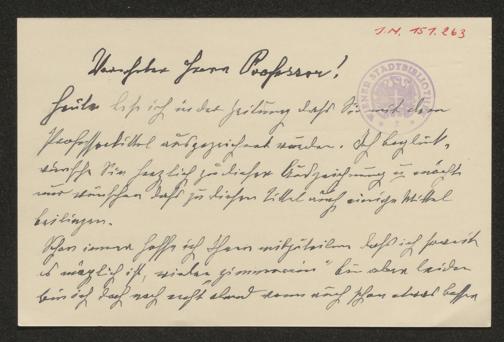 J.N. 151.263
WIENER STADTBIBLIOTHEK
Verehrter Herr Professor!
Heute lese ich in der Zeitung daß Sie mit dem
Professortitel ausgezeichnet wurden. Ich beglück-
wünsche Sie herzlich zu dieser Auszeichnung u möchte
nur wünschen daß zu diesem Titel noch einige Mittel
beiliegen.
Schon immer hoffe ich Ihnen mitzuteilen daß ich soweit
es möglich ist, wieder bin aber leider
bin ich doch noch nicht wenn auch schon etwas besser